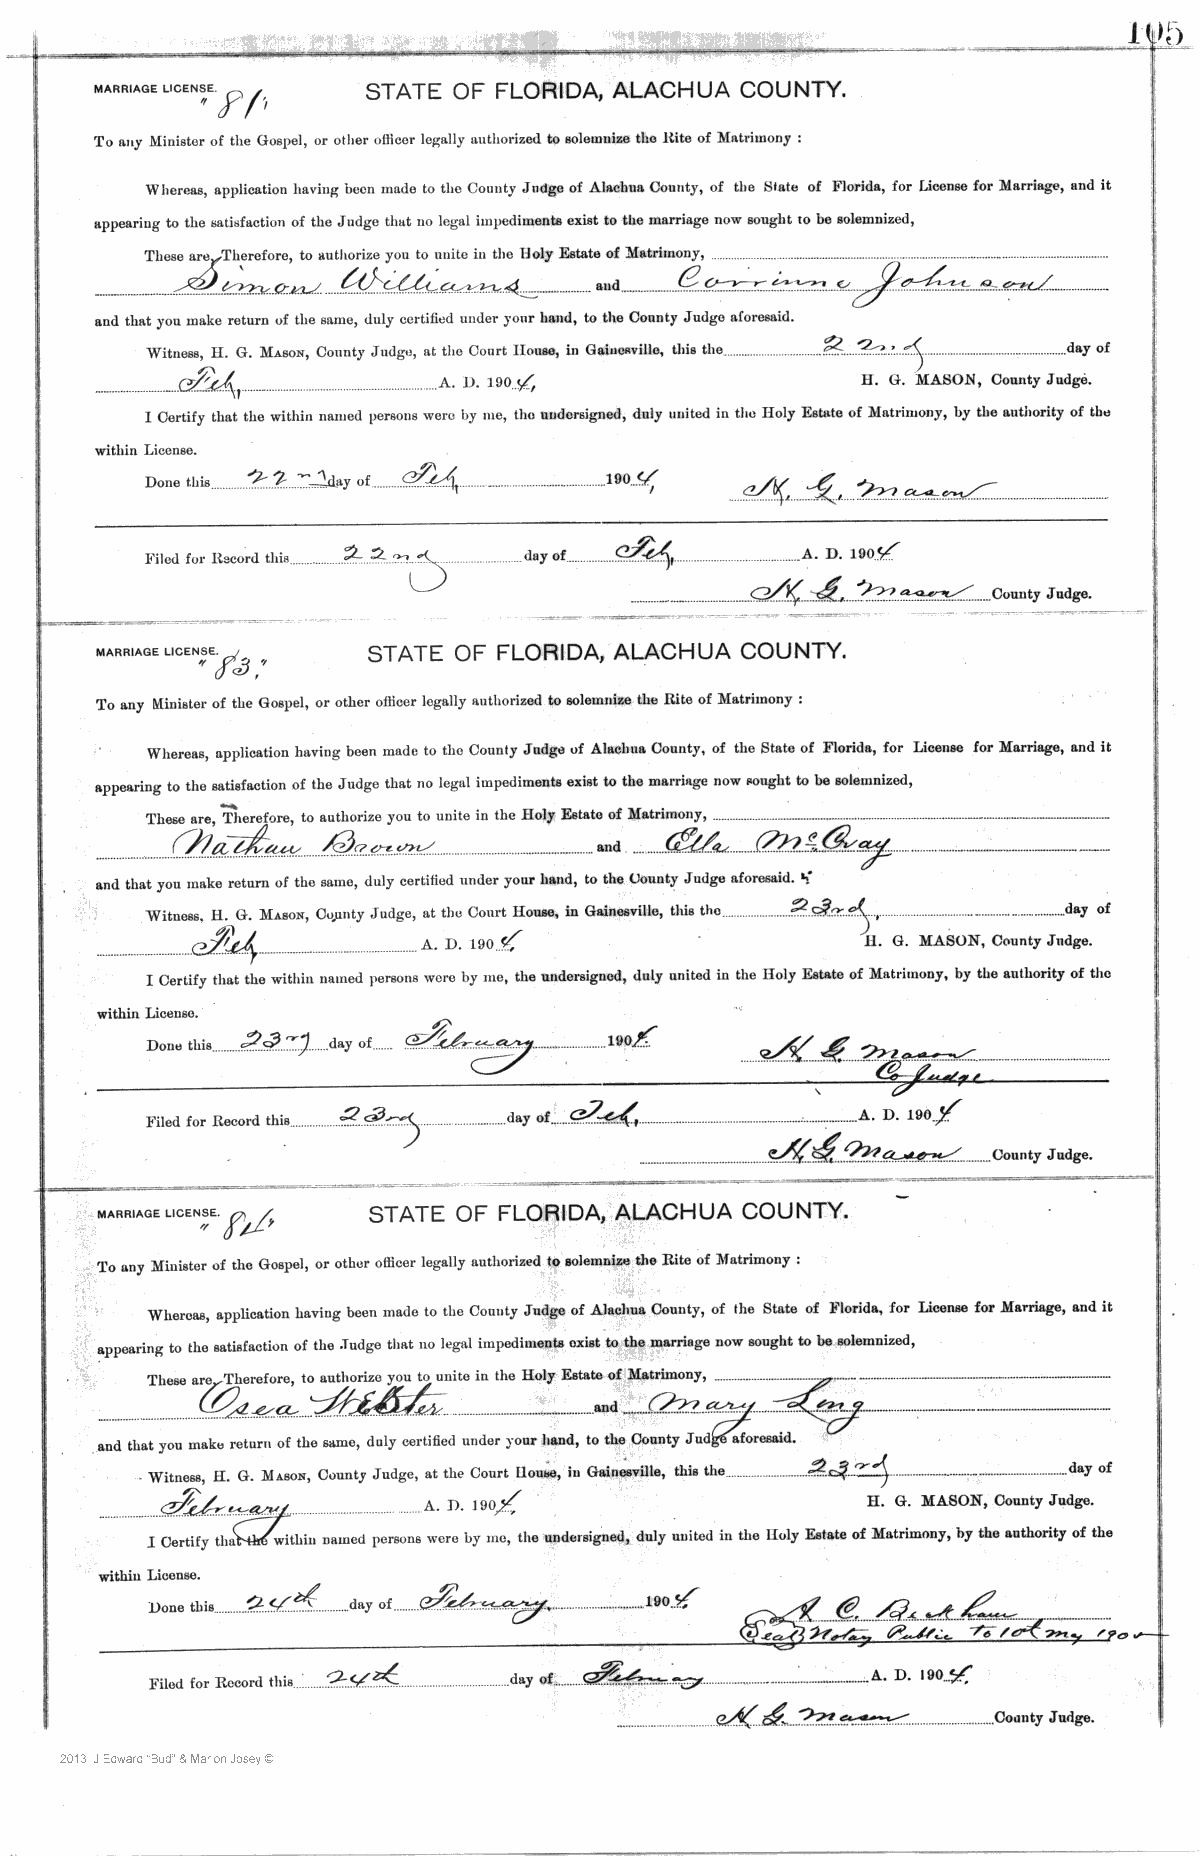 105
MARRIAGE LICENSE. STATE OF FLORIDA, ALACHUA COUNTY.
"81"
To any Minister of the Gospel, or other officer legally authorized to solemnize the Rite of Matrimony :
Whereas, application having been made to the County Judge of Alachua County, of the State of Florida, for License for Marriage, and it
appearing to the satisfaction of the Judge that no legal impediments exist to the marriage now sought to be solemnized,
These are, Therefore, to authorize you to unite in the Holy Estate of Matrimony,
Simon Williams and Corrinne Johnson
and that you make return of the same, duly certified under your hand, to the County Judge aforesaid.
Witness, H. G. MASON, County Judge, at the Court House, in Gainesville, this the 22nd day of
Feb, A. D. 1904, H. G. MASON, County Judge.
I Certify that the within named persons were by me, the undersigned, duly united in the Holy Estate of Matrimony, by the authority of the
within License.
Done this 22nd day of Feb, 1904, H. G. Mason
Filed for Record this 22nd day of Feb, A. D. 1904
H. G. Mason County Judge.
MARRIAGE LICENSE. STATE OF FLORIDA, ALACHUA COUNTY.
"83."
To any Minister of the Gospel, or other officer legally authorized to solemnize the Rite of Matrimony :
Whereas, application having been made to the County Judge of Alachua County, of the State of Florida, for License for Marriage, and it
appearing to the satisfaction of the Judge that no legal impediments exist to the marriage now sought to be solemnized,
These are, Therefore, to authorize you to unite in the Holy Estate of Matrimony,
Nathan Brown and Ella McCray
and that you make return of the same, duly certified under your hand, to the County Judge aforesaid.
Witness, H. G. MASON, County Judge, at the Court House, in Gainesville, this the 23rd, day of
Feb A. D. 1904, H. G. MASON, County Judge.
I Certify that the within named persons were by me, the undersigned, duly united in the Holy Estate of Matrimony, by the authority of the
within License.
Done this 23rd day of February 1904. H. G. Mason
Co Judge
Filed for Record this 23rd day of Feb, A. D. 1904
H. G. Mason County Judge.
MARRIAGE LICENSE. STATE OF FLORIDA, ALACHUA COUNTY.
"84"
To any Minister of the Gospel, or other officer legally authorized to solemnize the Rite of Matrimony :
Whereas, application having been made to the County Judge of Alachua County, of the State of Florida, for License for Marriage, and it
appearing to the satisfaction of the Judge that no legal impediments exist to the marriage now sought to be solemnized,
These are, Therefore, to authorize you to unite in the Holy Estate of Matrimony,
Osea Webster and Mary Long
and that you make return of the same, duly certified under your hand, to the County Judge aforesaid.
Witness, H. G. MASON, County Judge, at the Court House, in Gainesville, this the 23rd day of
February A. D. 1904, H. G. MASON, County Judge.
I Certify that the within named persons were by me, the undersigned, duly united in the Holy Estate of Matrimony, by the authority of the
within License.
Done this 24th day of February, 1904, C. Beckham
Seal Notary Public To 10th May
Filed for Record this 24th day of February A. D. 1904,
H. G. Mason County Judge.
2013 J Edward "Bud" & Marion Josey ©